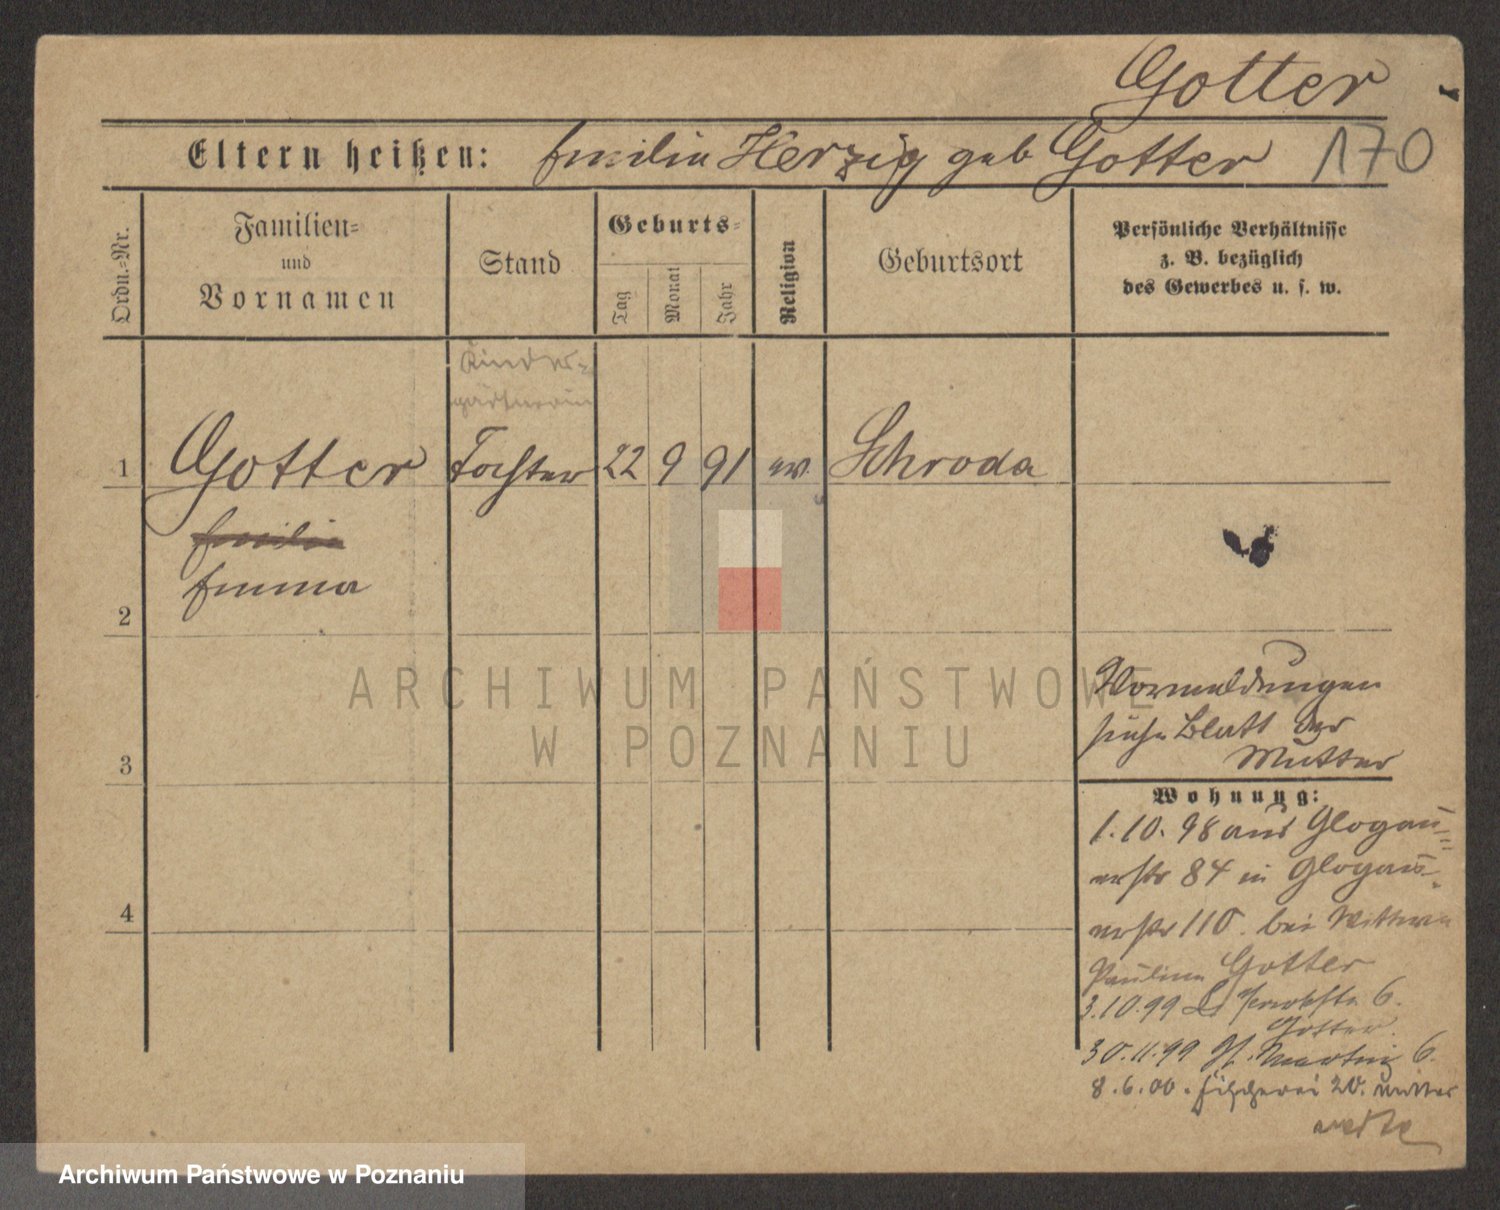 Gotter
Eltern heißen: Emilie Herzig geb Gotter 170
Ordn.-Nr.
Familien-
und
Vornamen
Stand
Geburts-
Tag
Monat
Jahr
Religion
Geburtsort
Persönliche Verhältnisse
z. B. bezüglich
des Gewerbes u. s. w.
Kinder-
gärtnerin
1 Gotter Tochter 22 9 91 ev. Schroda
Emilie
Emma
2
ARCHIWUM PAŃSTWOWE
W POZNANIU
Vormeldungen
siehe Blatt der
Mutter
3
Wohnung:
1.10.98 aus Glogau-
erstr 84 in Glogau-
erstr 110. bei Wittwe
Pauline Gotter
3.10.99 6.
Gotter.
30.11.99 St. Martin 6.
8.6.00. Fischerei 20. Mutter
4
Archiwum Państwowe w Poznaniu